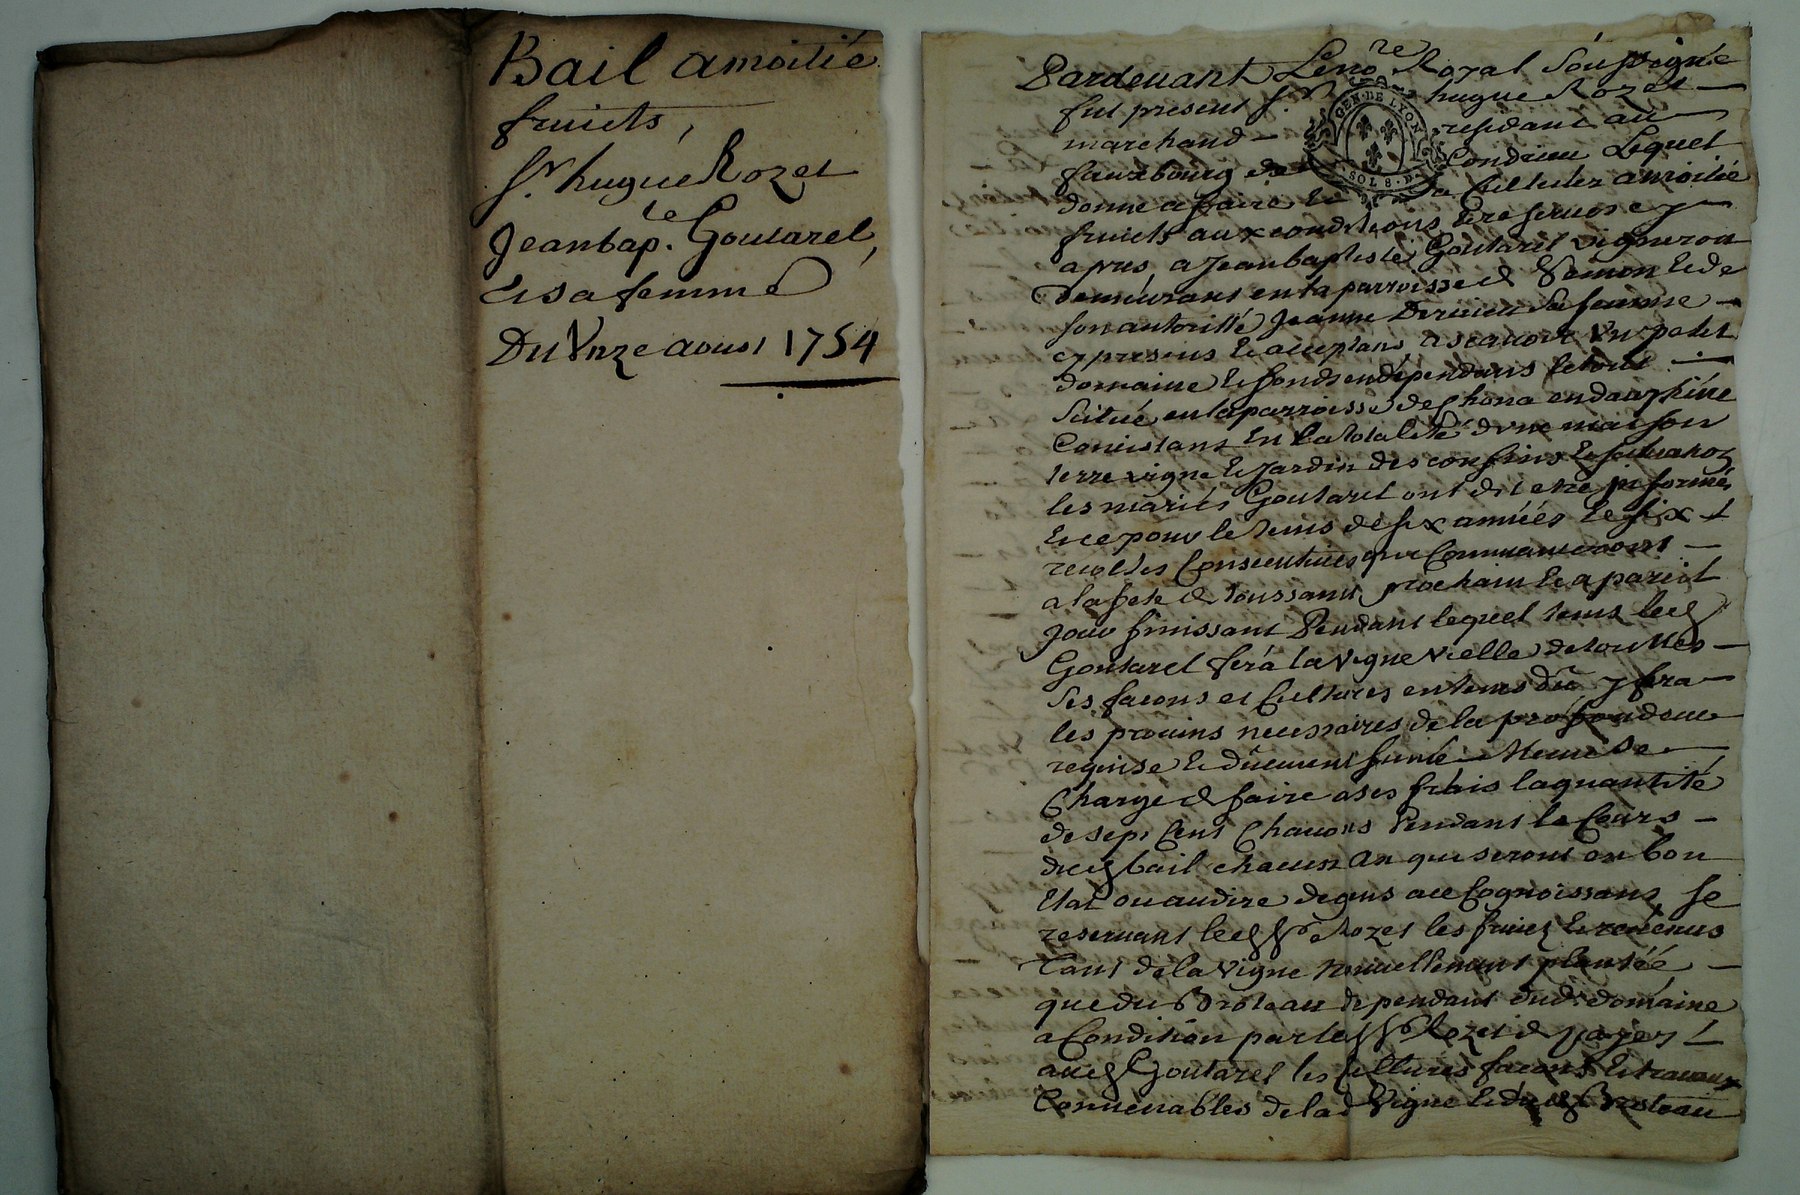 Bail amoitié
fruicts,
Sr. hugue Rozet
Jeanbap.te Goutarel,
et sa femme
Du Unze aoust 1754
Pardevant Le no.re Royal Soussigné
fut present Sr. hugue Rozet
marchand residant au
fauxbourg de Condrieu Lequel
donne a faire et Cultiver amoitié
fruicts aux conditions et reserves cy
apres, a Jeanbaptiste Goutarel vigneron
demeurant en la parroisse de Semon et de
son autoritté Jeanne sa femme
cy presens et acceptans a scavoir Un petit
domaine et fonds en dépendants le tout
Scitué en la parroisse de Chona en dauphiné
Consistant En la totalité d'une maison
terre vigne et Jardin des confins et situation
les mariés Goutarel ont dit etre informés
Et ce pour le tems de six années et six
recoltes Consecutives qui Commanceront
a la fete de toussants prochain et a pareil
jour finissant Pendant lequel tems led
Goutarel fera la Vigne Vielle de touttes
Ses facons et Cultures en tems dû y fera
les provins necessaires de la profondeur
requise et dûement fumé Meme se
Charge de faire a ses frais la quantité
de sept Cent Chavons Pendant le Cours
dud bail chacun an qui seront en bon
Etat ou au dire de gens a ce Cognoissants Se
reservant led Sr Rozet les fruits et revenus
tant de la vigne nouvellement plantée
que du Broteau dependant dud. domaine
a Condition par led Sr Rozet de payer
aud Goutarel les Cultures facons et travaux
Convenables de lad Vigne et dud Broteau
GEN. DE LYON
SOLS